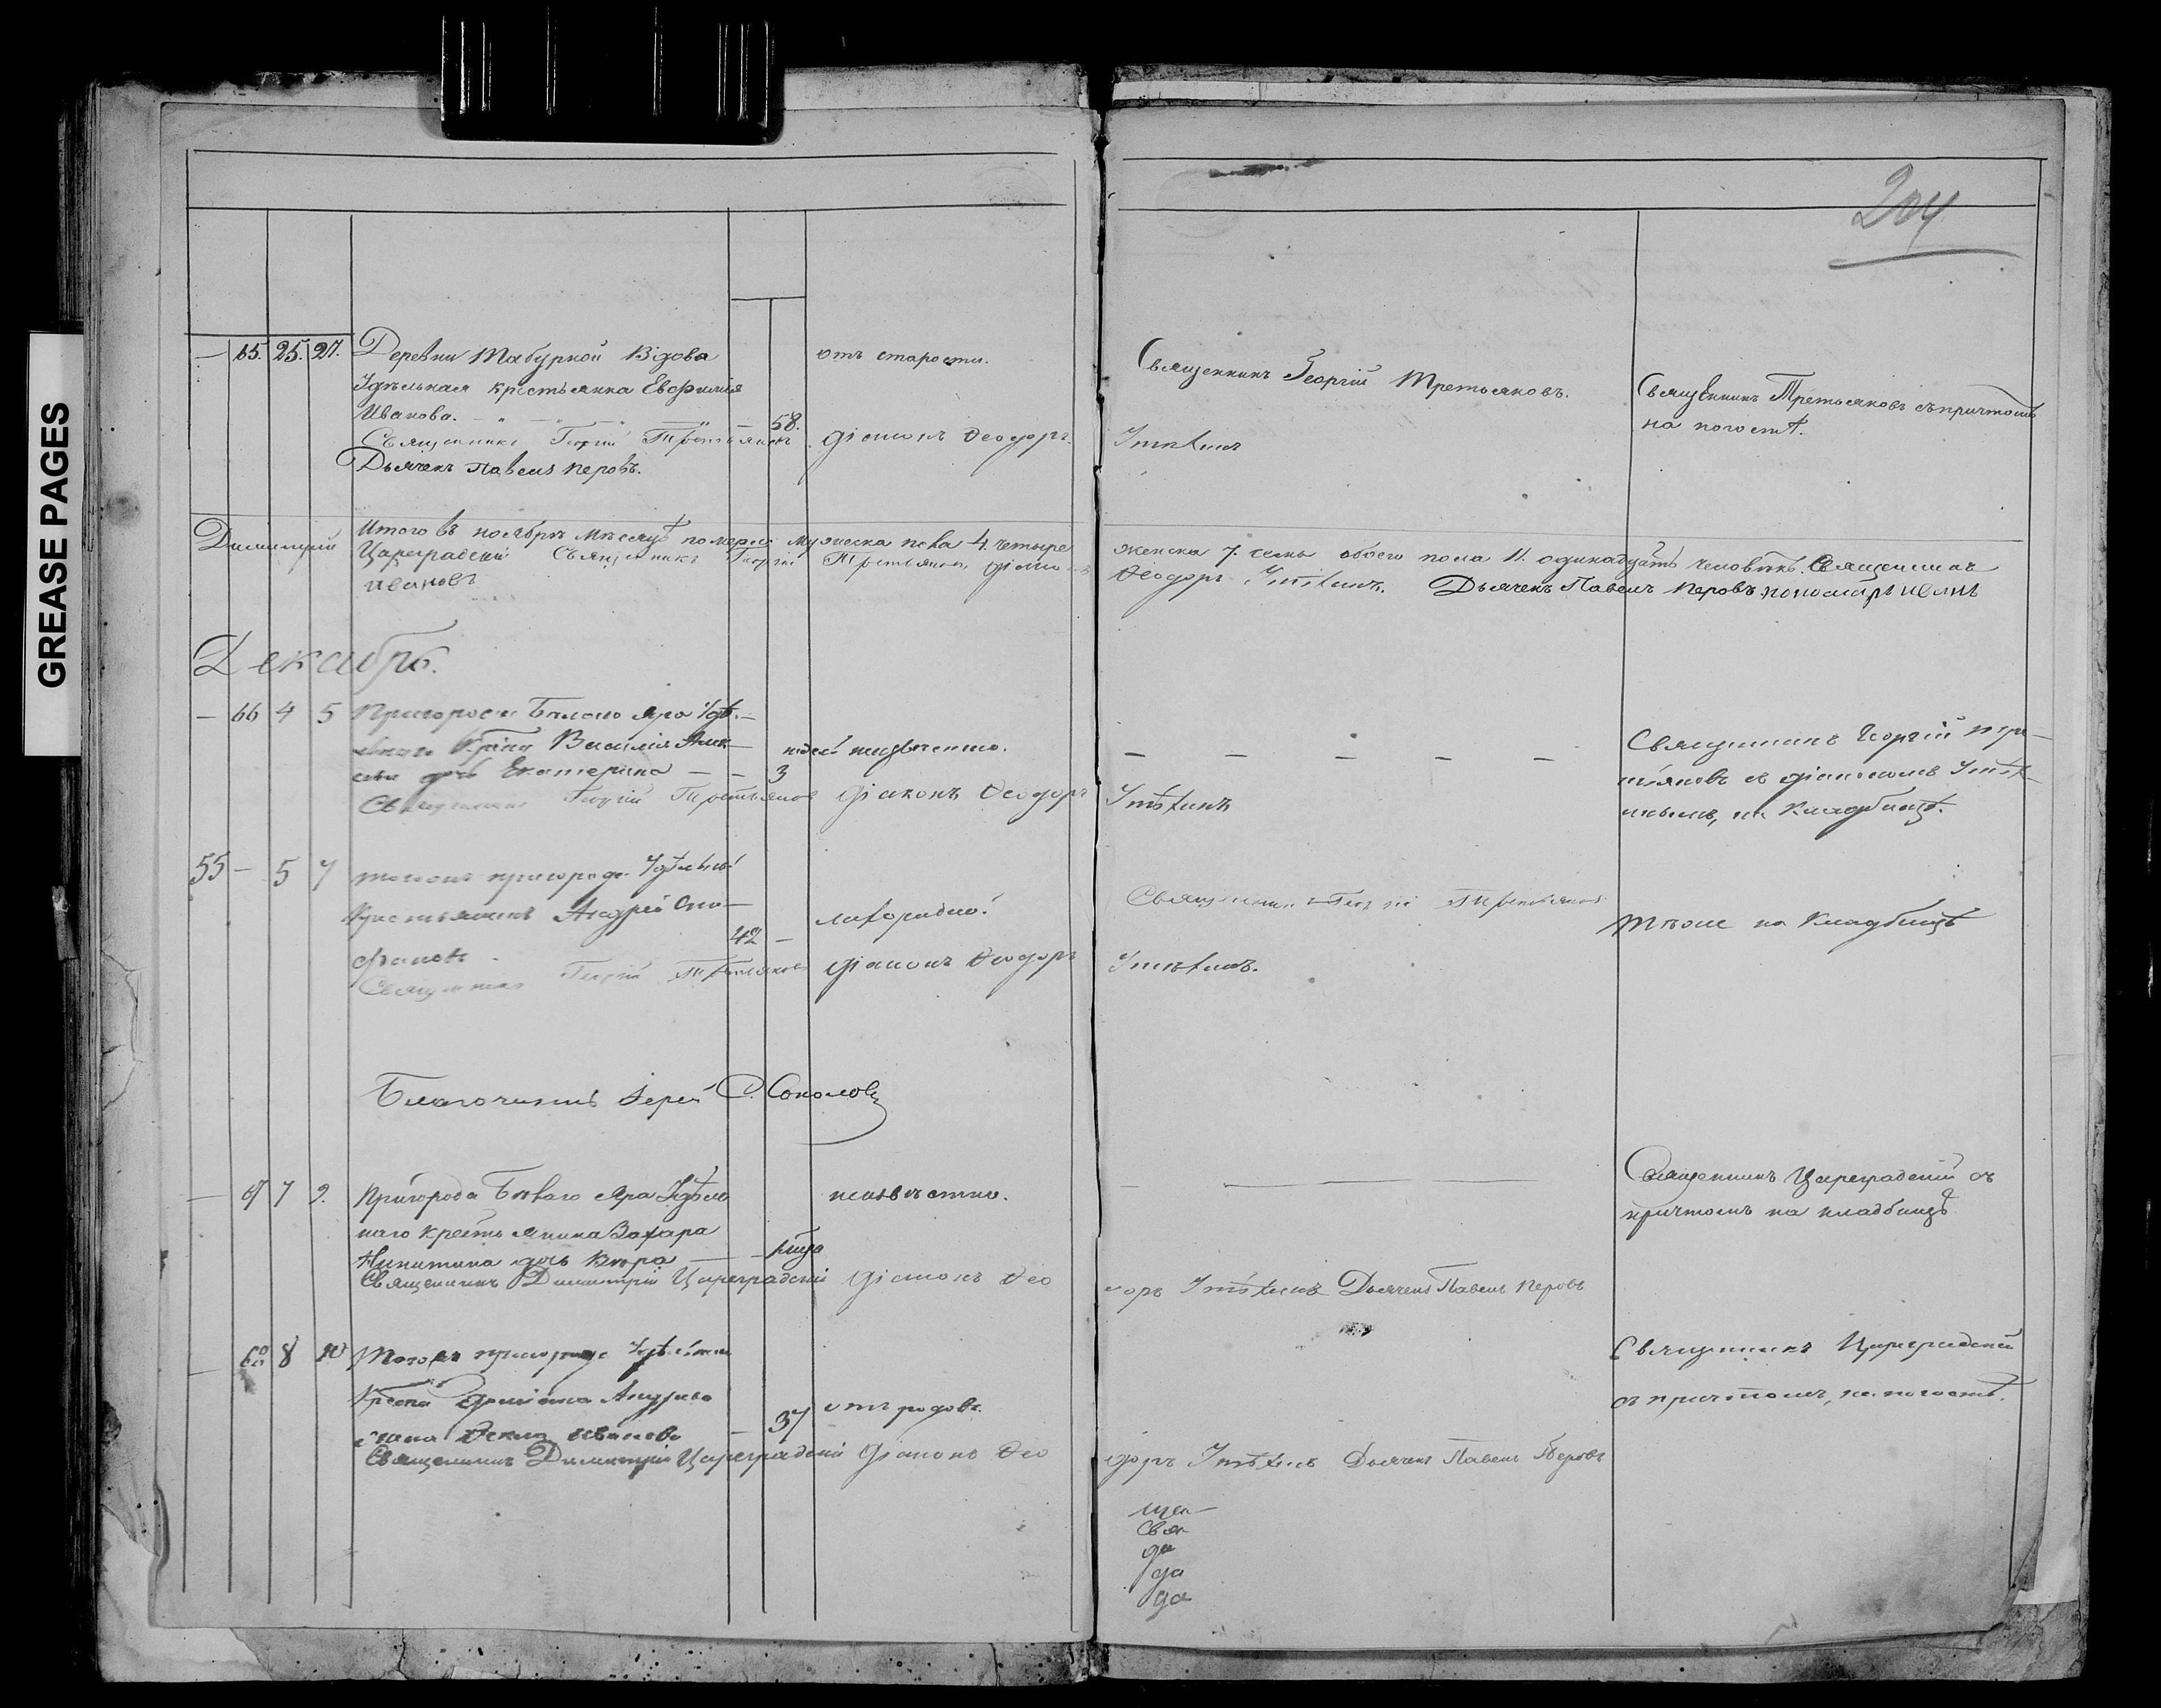 GREASE PAGES
204
— 65. 25. 27. Деревни Табурной Вдова
Удѣльная крестьянка Евфимія
Иванова. — 58.
отъ старости.
Священникъ Георгій Третьяковъ.
Священникъ Третьяковъ съ причтомъ
на погостѣ.
Священникъ Георгій Третьяковъ діаконъ Ѳеодоръ
Дьячекъ Павелъ Перовъ.
Итого въ ноябрѣ мѣсяцѣ померло мужеска пола 4. четыре
женска 7. семь обоего пола 11. одинадцать человѣкъ. Священникъ
Димитрій Цареградскій Священникъ Георгій Третьяковъ діаконъ
Ѳеодоръ Дьячекъ Павелъ Перовъ. пономарь
Ивановъ
Декабрь.
— 66 4 5 Пригорода Бѣлаго Яра Удѣ-
льнаго Крѣна Василія Алек-
дочь Екатерина — — 3
неизвѣстно.
— — — — —
Священникъ Георгій Тре-
тьяковъ съ діакономъ
на Кладбищѣ.
Священникъ Георгій Третьяковъ діаконъ Ѳеодоръ
55 — 5 7 тогоже пригорода Удѣльный
Крестьянинъ Андрей Сте-
фановъ 42 —
Священникъ Георгій Третьяковъ
Тѣже на Кладбищѣ
Священникъ Георгій Третьяковъ діаконъ Ѳеодоръ
Благочинный Іерей С. Соколовъ
— 67 7 9. Пригорода Бѣлаго Яра Удѣль
наго крестьянина Захара
Никитина дочь —
неизвѣстно.
Священникъ Цареградскій съ
причтомъ на кладбищѣ
Священникъ Димитрій Цареградскій діаконъ Ѳео
доръ Дьячекъ Павелъ Перовъ
— 68 8 10 Тогоже пригорода Удѣльнаго
Андреева
жена Ѳекла Иванова — 37
отъ родовъ.
Священникъ Цареградскій
съ причтомъ, на погостѣ.
Священникъ Димитрій Цареградскій діаконъ Ѳео
доръ Дьячекъ Павелъ Перовъ
Свя
да
да
да